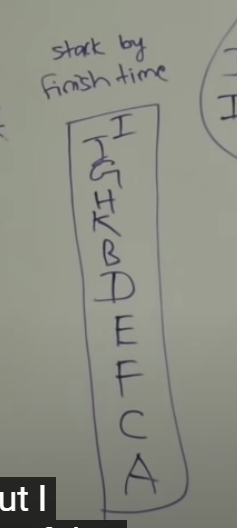 stack by
finish time
I
J
G
H
K
B
D
E
F
C
A
I
ut I